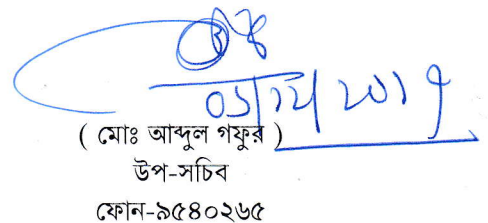 ০১/১২/২০১৭
( মোঃ আব্দুল গফুর )
উপ-সচিব
ফোন-৯৫৪০২৬৫